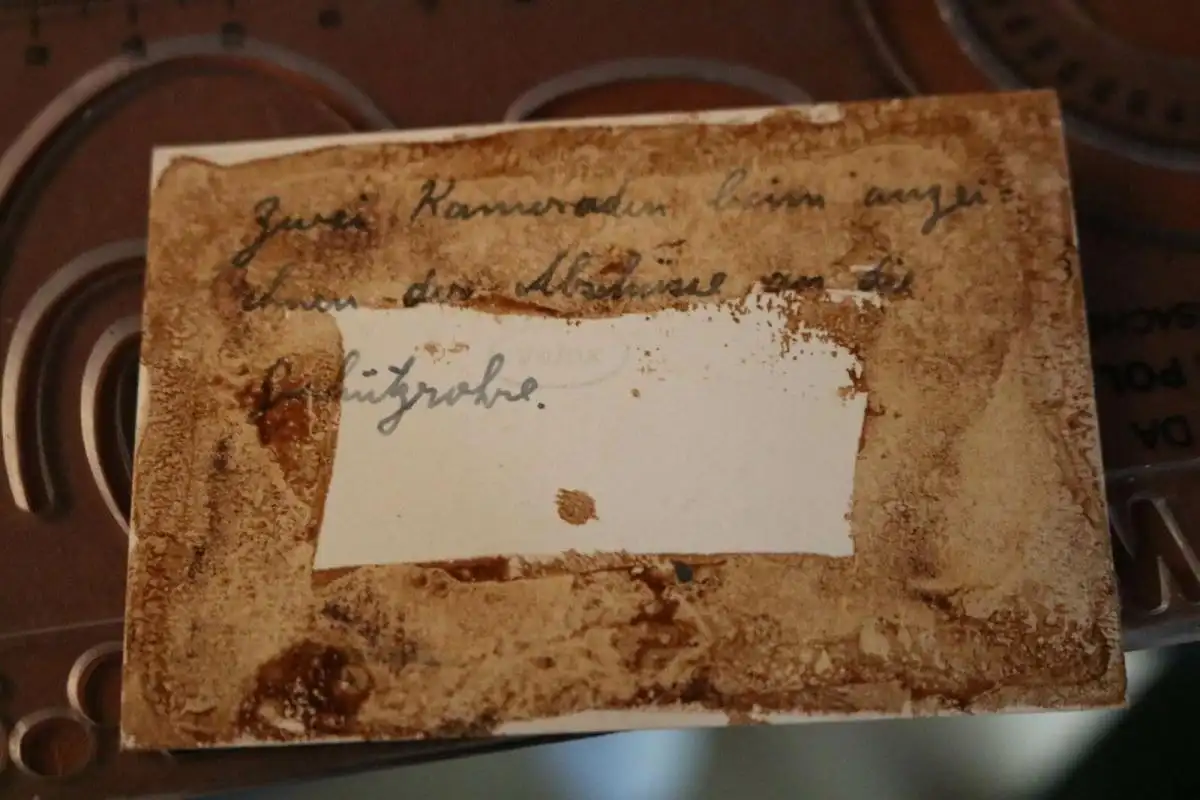 Zwei Kameraden beim anzei=
chnen der Abschüsse an die
Geschützrohre.